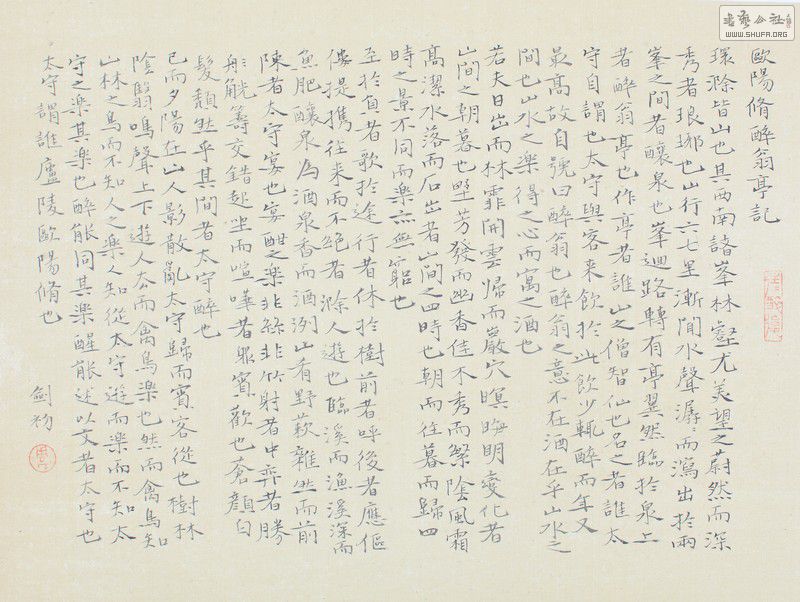 書藝公社
WWW.SHUFA.ORG
歐陽脩醉翁亭記
環滁皆山也其西南諸峯林壑尤美望之蔚然而深
秀者琅琊也山行六七里漸聞水聲潺而瀉出於兩
峯之間者釀泉也峯迴路轉有亭翼然臨於泉上
者醉翁亭也作亭者誰山之僧智仙也名之者誰太
守自謂也太守與客来飲於此飲少輒醉而年又
最高故自號曰醉翁也醉翁之意不在酒在乎山水之
間也山水之樂得之心而寓之酒也
若夫日出而林霏開雲歸而巖穴暝晦明變化者
山間之朝暮也野芳發而幽香佳木秀而繁陰風霜
高潔水落而石出者山間之四時也朝而往暮而歸四
時之景不同而樂亦無窮也
至於負者歌於途行者休於樹前者呼後者應傴
僂提携往来而不絕者滁人遊也臨溪而漁溪深而
魚肥釀泉為酒泉香而酒洌山肴野蔌雜然而前
陳者太守宴也宴酣之樂非絲非竹射者中弈者勝
觥籌交錯起坐而喧嘩者眾賓歡也蒼顏白
髮頹然乎其間者太守醉也
已而夕陽在山人影散亂太守歸而賓客從也樹林
陰翳鳴聲上下遊人去而禽鳥樂也然而禽鳥知
山林之鳥而不知人之樂人知從太守遊而樂而不知太
守之樂其樂也醉能同其樂醒能述以文者太守也
太守謂誰廬陵歐陽脩也
劍初